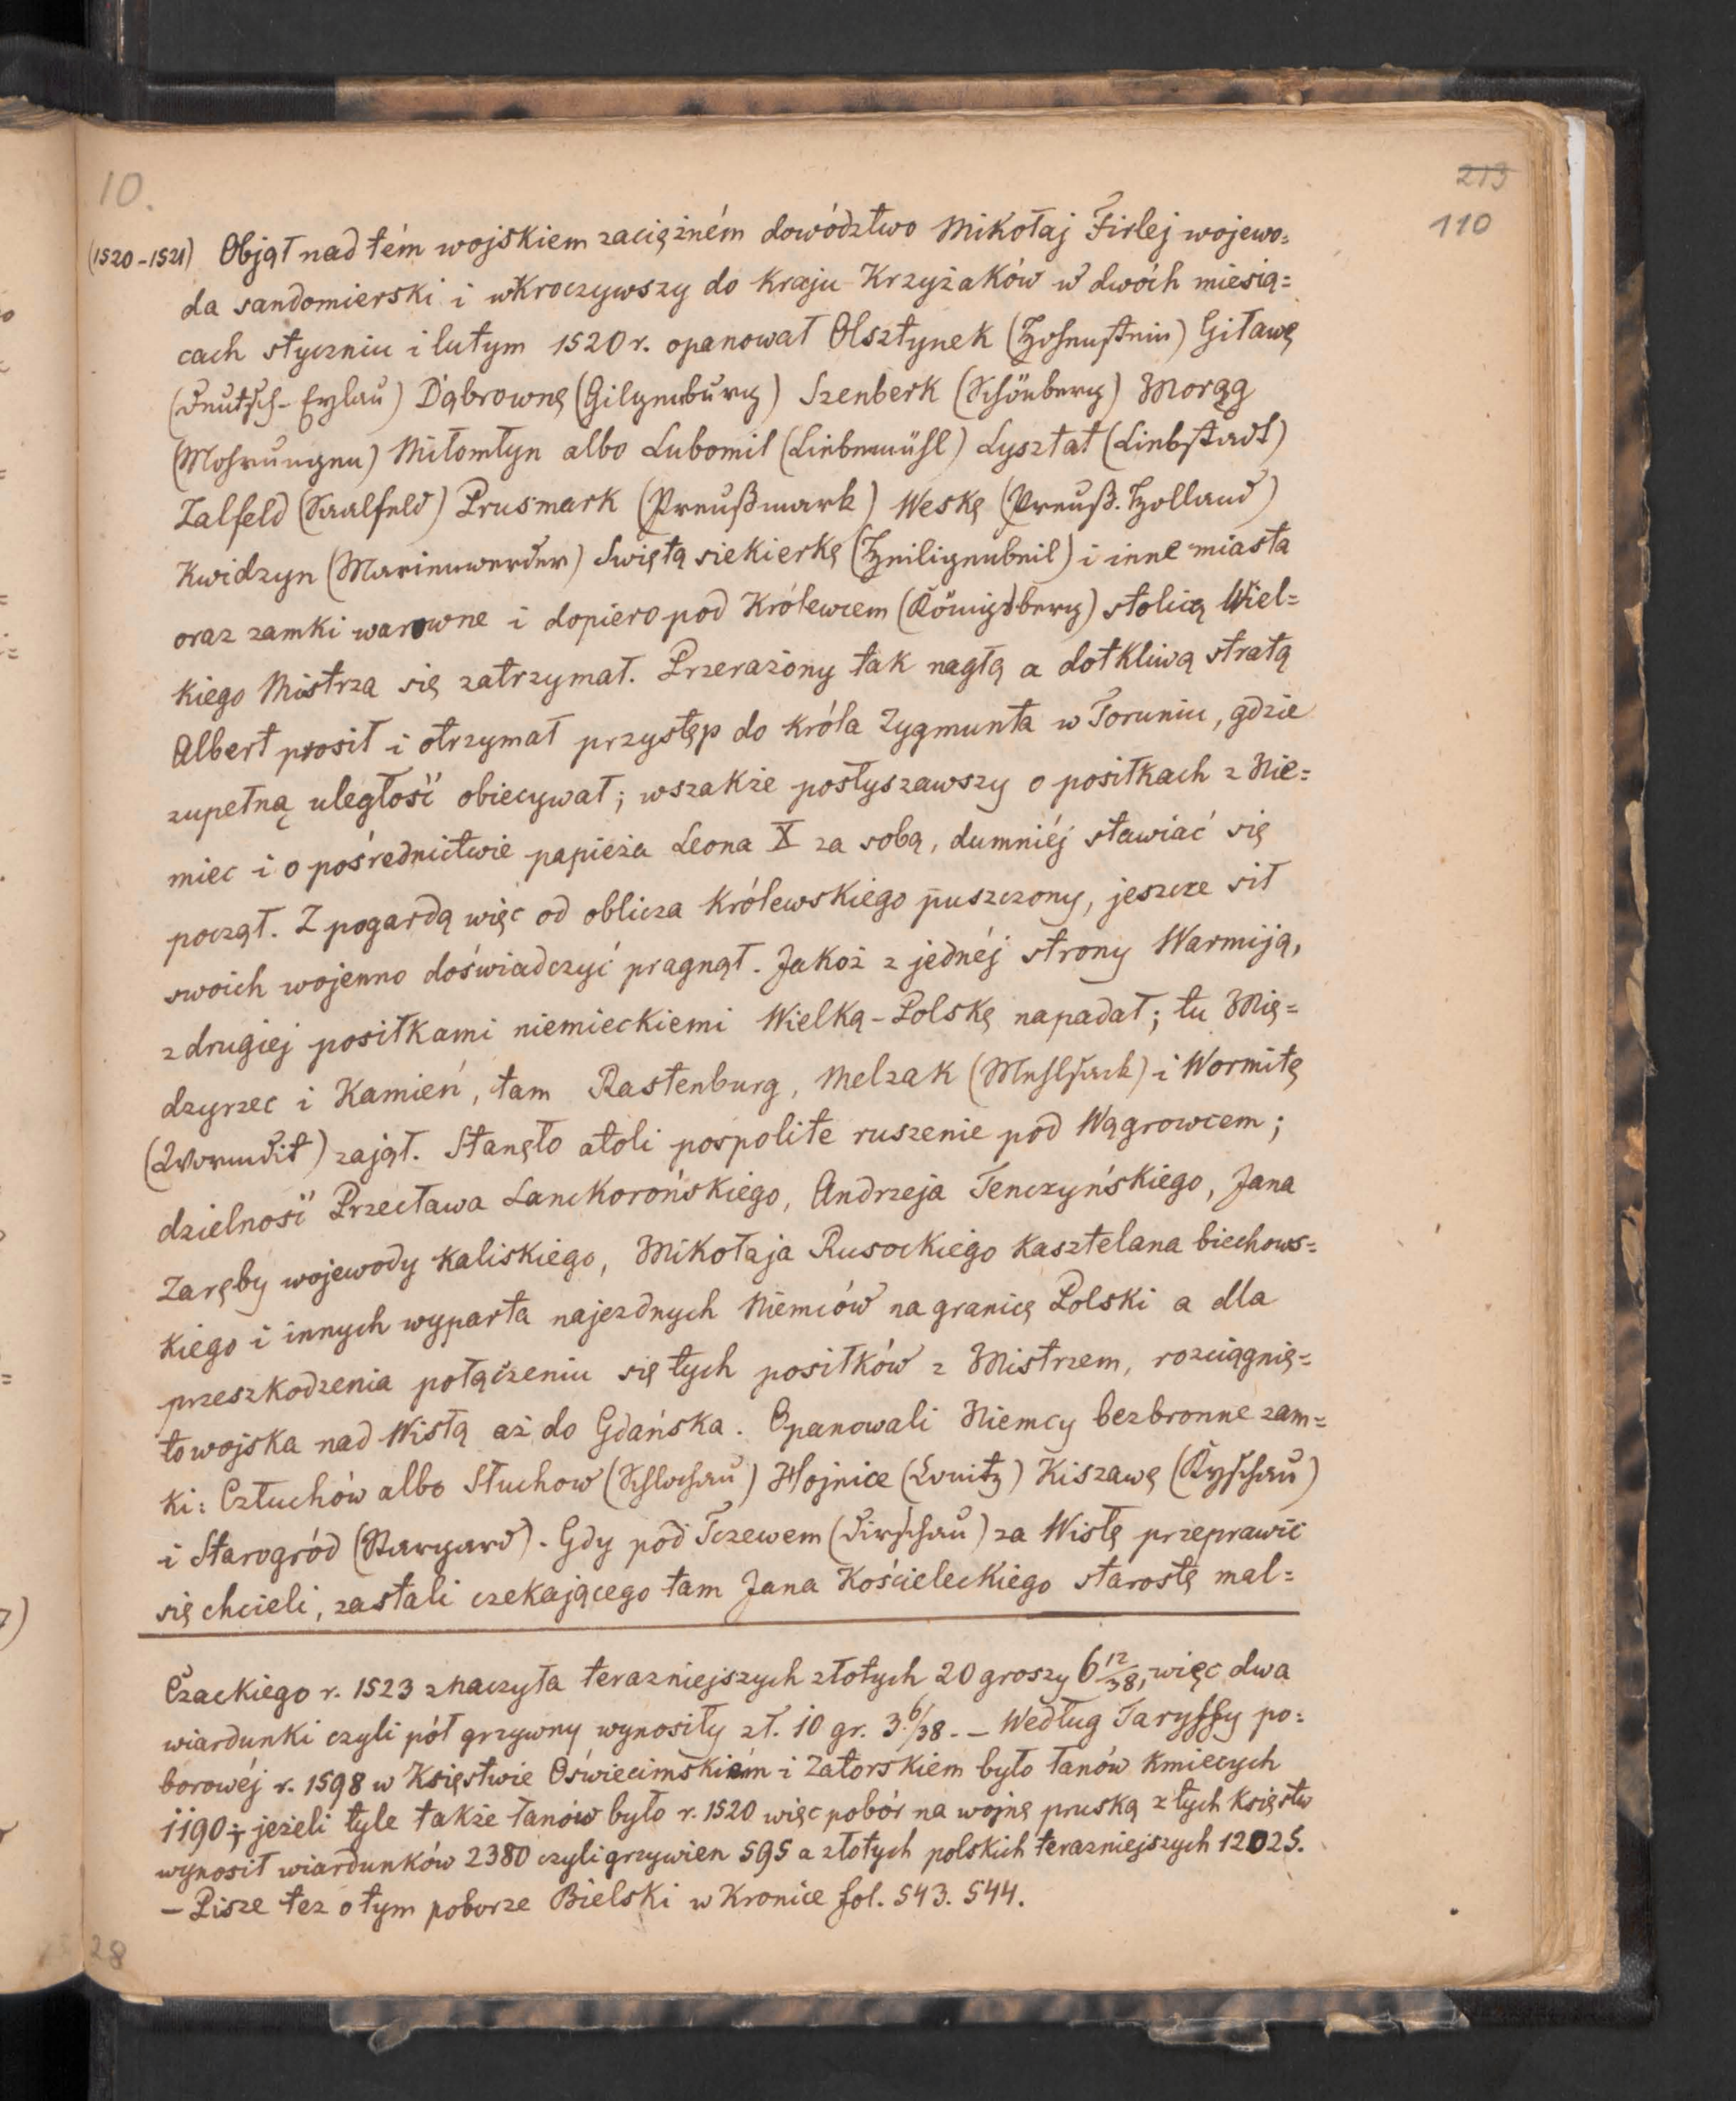 10.
213
110
(1520-1521) Objął nad tém wojskiem zaciężném dowództwo Mikołaj Firlej wojewo=
da sandomierski i wkroczywszy do kraju Krzyżaków w dwóch miesią=
cach styczniu i lutym 1520 r. opanował Olsztynek (Hohenstein) Giławę
(Deutsch-Eylau) Dąbrownę (Gilgenburg) Szenberk (Schönberg) Morąg
(Mohrungen) Miłomłyn albo Lubomil (Liebemühl) Lysztat (Liebstadt)
Zalfeld (Saalfeld) Prusmark (Preußmark) Weskę (Preuß. Holland)
Kwidzyn (Marienwerder) Swiętą siekierkę (Heiligenbeil) i inne miasta
oraz zamki warowne i dopiero pod Królewcem (Königsberg) stolicą Wiel=
kiego Mistrza się zatrzymał. Przerażony tak nagłą a dotkliwą stratą
Albert prosił i otrzymał przystęp do króla Zygmunta w Toruniu, gdzie
zupełną uległość obiecywał; wszakże posłyszawszy o posiłkach z Nie=
miec i o pośrednictwie papieża Leona X za sobą, dumniéj stawiać się
począł. Z pogardą więc od oblicza królewskiego puszczony, jeszcze sił
swoich wojenno doświadczyć pragnął. Jakoż z jednéj strony Warmiją,
z drugiej posiłkami niemieckiemi Wielką-Polskę napadał; tu Mię=
dzyrzec i Kamień, tam Rastenburg, Melzak (Mehlsack) i Wormitę
(Wormdit) zajął. Stanęło atoli pospolite ruszenie pod Wągrowcem;
dzielność Przecława Lanckorońskiego, Andrzeja Tenczyńskiego, Jana
Zaręby wojewody kaliskiego, Mikołaja Rusockiego kasztelana biechows=
kiego i innych wyparła najezdnych Niemców na granicę Polski a dla
przeszkodzenia połączeniu się tych posiłków z Mistrzem, rozciągnię=
to wojska nad Wisłą aż do Gdańska. Opanowali Niemcy bezbronne zam=
ki: Człuchów albo Słuchow (Schlochau) Hojnice (Conitz) Kiszawę (Kyschau)
i Starogród (Stargard). Gdy pod Tczewem (Dirschau) za Wisłę przeprawić
się chcieli, zastali czekającego tam Jana Kościeleckiego starostę mal=
Czackiego r. 1523 znaczyła terazniejszych złotych 20 groszy 6 12/38, więc dwa
wiardunki czyli pół grzywny wynosiły zł. 10 gr. 3 6/38. — Według Taryffy po=
borowéj r. 1598 w Księstwie Oświecimskiém i Zatorskiem było łanów kmiecych
1190; jeżeli tyle także łanów było r. 1520 więc pobór na wojnę pruską z tych księstw
wynosił wiardunków 2380 czyli grzywien 595 a złotych polskich terazniejszych 12025.
— Pisze tez o tym poborze Bielski w Kronice fol. 543. 544.
28